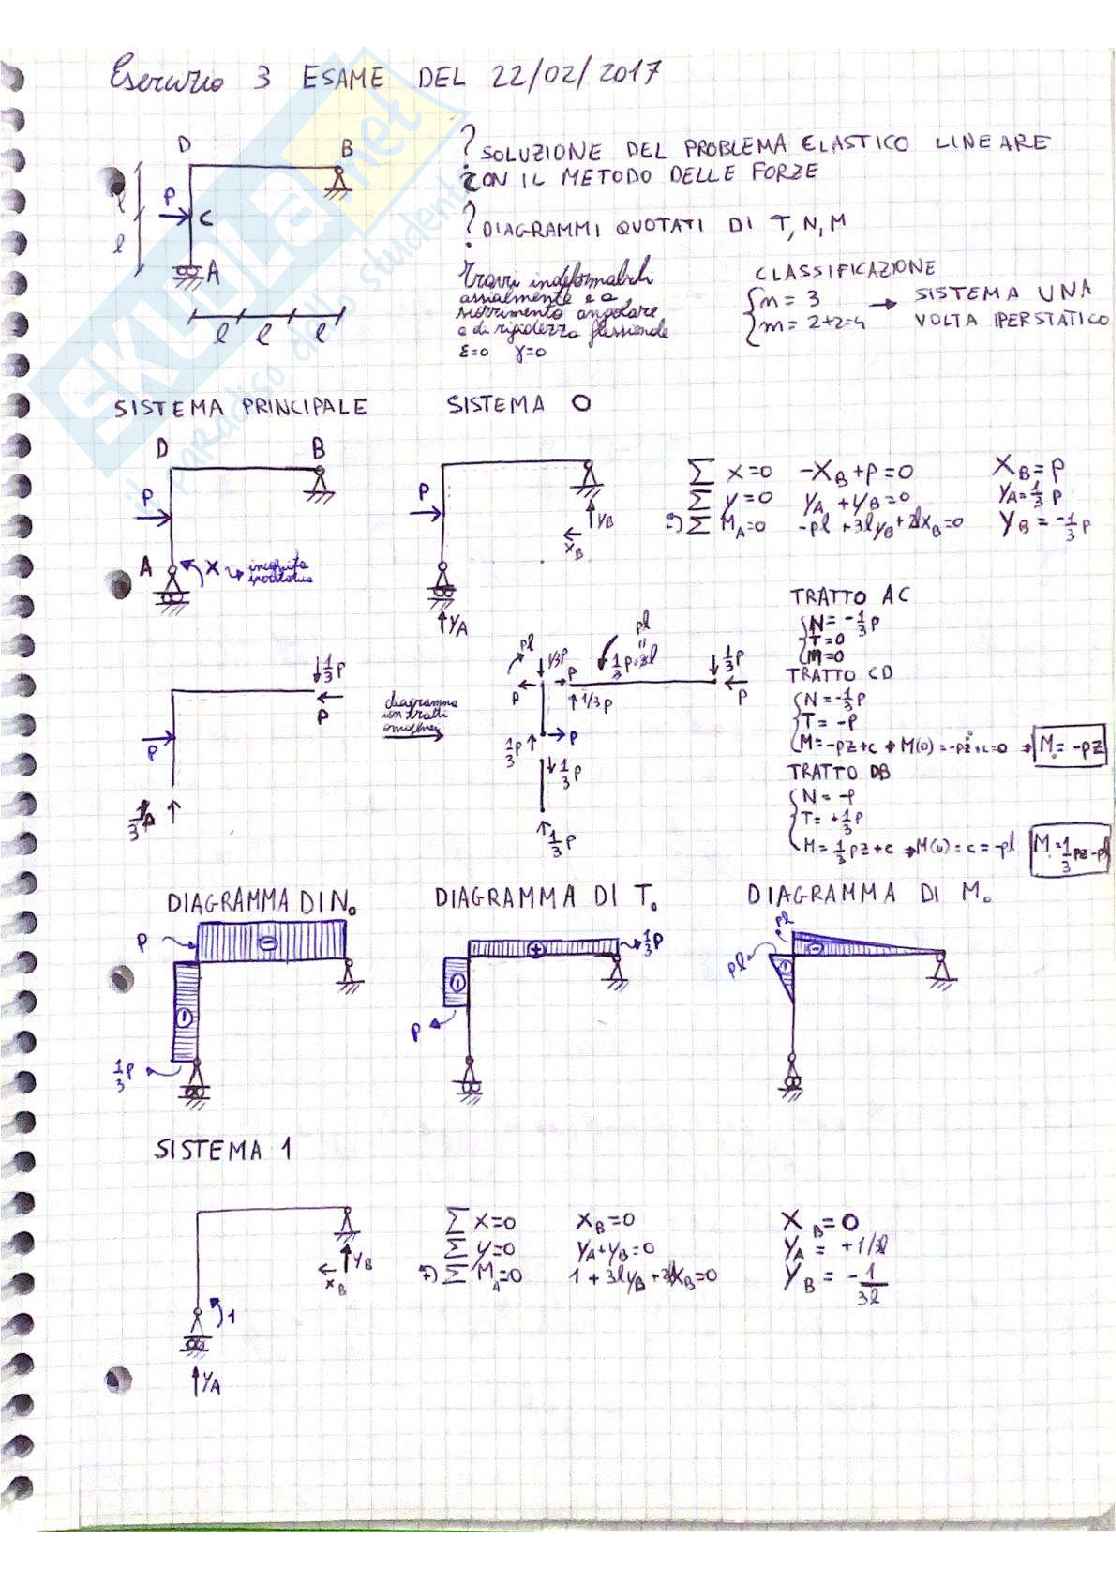 Esercizio 3 ESAME DEL 22/02/2017
D B
P C
l
l
A
l l l
? SOLUZIONE DEL PROBLEMA ELASTICO LINEARE
CON IL METODO DELLE FORZE
? DIAGRAMMI QUOTATI DI T, N, M
Travi indeformabili
assialmente e a
scorrimento angolare
e di rigidezza flessionale
ε=0 γ=0
CLASSIFICAZIONE
n = 3
m = 2+2=4
→ SISTEMA UNA
VOLTA IPERSTATICO
SISTEMA PRINCIPALE
SISTEMA 0
D B
P
A X → incognita
iperstatica
P
YB
XB
YA
∑ X=0 -XB+P=0 XB=P
∑ Y=0 YA+YB=0 YA=1/3 P
∑ MA=0 -Pl+3lYB+2lXB=0 YB=-1/3 P
1/3 P
P
P
1/3 P
diagramma
Pl 1/3P
P P
1/3 P
Pl
"
1/3 P·3l
1/3 P
P
1/3 P P
1/3 P
1/3 P
TRATTO AC
N=-1/3 P
T=0
M=0
TRATTO CD
N=-1/3 P
T=-P
M=-Pz+c → M(0)=-Pz+c=0 → M0=-Pz
TRATTO DB
N=-P
T=+1/3 P
M=1/3 Pz+c → M(0)=c=-Pl M0=1/3 Pz-Pl
DIAGRAMMA DI N0
DIAGRAMMA DI T0
DIAGRAMMA DI M0
P -
-
1/3 P
+ 1/3 P
-
P
Pl
-
Pl -
SISTEMA 1
YB
XB
1
YA
∑ X=0 XB=0 XB=0
∑ Y=0 YA+YB=0 YA=+1/3l
∑ MA=0 1+3lYB+2lXB=0 YB=-1/3l
SKUOLA.net